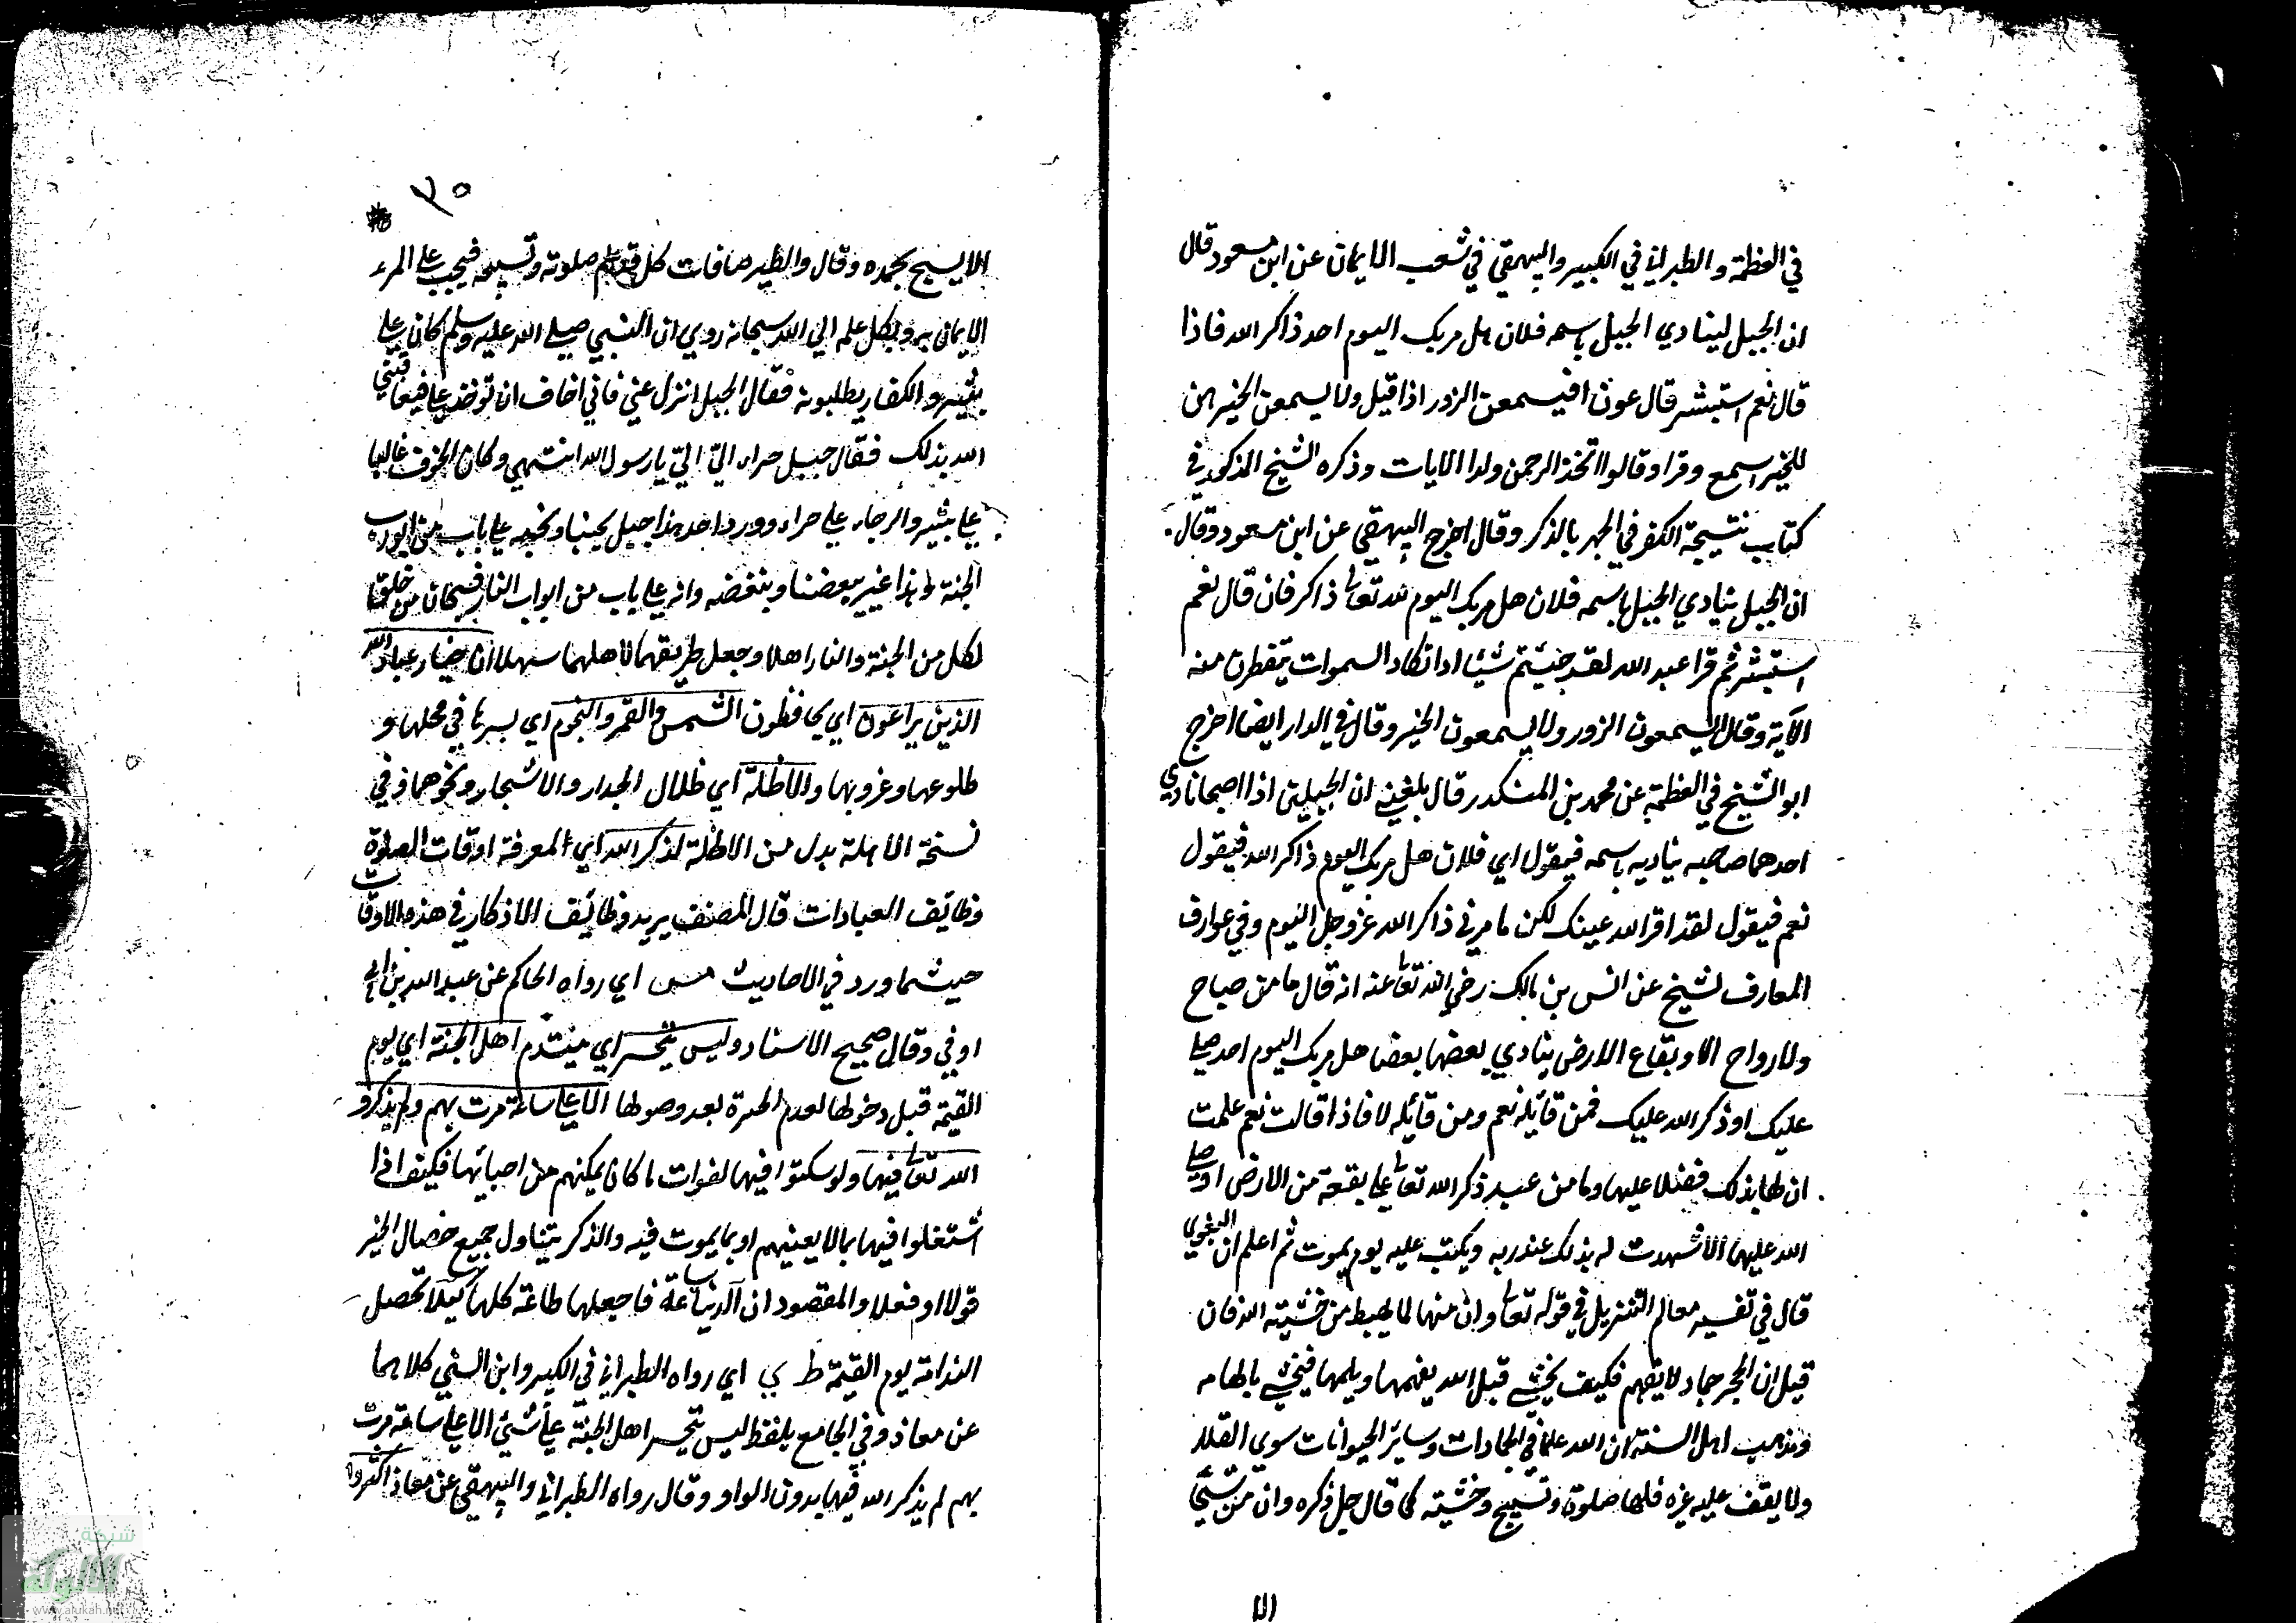 في العظمة والطبراني في الكبير والبيهقي في شعب الايمان عن ابن مسعود قال
ان الجبل لينادي الجبل باسمه فلان هل مر بك اليوم احد ذاكر الله فاذا
قال نعم استبشر قال عون افيسمعن الزور اذا قيل ولا يسمعن الخير هن
للخير اسمع وقرا وقالوا اتخذ الرحمن ولدا الايات وذكره الشيخ المذكور في
كتاب نتيجة الفكر في الجهر بالذكر وقال اخرج البيهقي عن ابن مسعود وقال
ان الجبل ينادي الجبل باسمه فلان هل مر بك اليوم لله تعالى ذاكر فان قال نعم
استبشر ثم قرا عبد الله لقد جئتم شيئا ادا تكاد السموات يتفطرن منه
الآية وقال ايسمعون الزور ولا يسمعون الخير وقال في الدار ايضا اخرج
ابو الشيخ في العظمة عن محمد بن المنكدر قال بلغني ان الجبلين اذا اصبحا نادي
احدهما صاحبه يناديه باسمه فيقول اي فلان هل مر بك اليوم ذاكر الله فيقول
نعم فيقول لقد اقر الله عينك لكن ما مر بي ذاكر الله عز وجل اليوم وفي عوارف
المعارف لشيخ عن انس بن مالك رضي الله تعالى عنه انه قال ما من صباح
ولا رواح الا وبقاع الارض ينادي بعضها بعضا هل مر بك اليوم احد صلى
عليك او ذكر الله عليك فمن قائلة نعم ومن قائلة لا فاذا قالت نعم علمت
ان لها بذلك فضلا عليها وما من عبد ذكر الله تعالى على بقعة من الارض او صلى
الله عليها الا شهدت له بذلك عند ربه وبكت عليه يوم يموت ثم اعلم ان البغوي
قال في تفسيره معالم التنزيل في قوله تعالى وان منها لما يهبط من خشية الله فان
قيل ان الحجر جماد لا يفهم فكيف يخشى قيل الله يفهمها ويلهمها فيخشى بالهامه
ومذهب اهل السنة ان لله علما في الجمادات وسائر الحيوانات سوى العقلاء
ولا يقف عليه غيره فلها صلوة وتسبيح وخشية كما قال جل ذكره وان من شيء
الا
٣٥
الا يسبح بحمده وقال والطير صافات كل قد علم صلوته وتسبيحه فيجب على المرء
الايمان به ويكل علمه الى الله سبحانه روي ان النبي صلى الله عليه وسلم كان على
ثبير والكفار يطلبونه فقال الجبل انزل عني فاني اخاف ان تؤخذ علي فيعاقبني
الله بذلك فقال جبل حراء اليّ اليّ يا رسول الله انتهى وكان الخوف غالبا
على ثبير والرجاء على حراء وورد احد هذا جبل يحبنا ونحبه على باب من ابواب
الجنة وهذا عير يبغضنا ونبغضه وانه على باب من ابواب النار فسبحان من خلق
لكل من الجنة والنار اهلا وجعل طريقهما لاهلهما سهلا ان خيار عباد الله
الذين يراعون اي يحافظون الشمس والقمر والنجوم اي لسيرها في محلها و
طلوعها وغروبها والاظلة اي ظلال الجدار والاشجار ونحوهما وفي
نسخة الاهلة بدل من الاظلة لذكر الله اي المعرفة اوقات الصلوة
وظائف العبادات قال المصنف يريد وظائف الاذكار في هذه الاوقات
حيثما ورد في الاحاديث مس اي رواه الحاكم عن عبد الله بن ابي
اوفي وقال صحيح الاسناد وليس يتحسر اي يتندم اهل الجنة اي يوم
القيمة قبل دخولها لعدم الحسرة بعد وصولها الا على ساعة مرت بهم ولم يذكروا
الله تعالى فيها ولو سكتوا فيها لفوات ما كان يمكنهم من احيائها فكيف اذا
اشتغلوا فيها بما لا يعنيهم او بما يموت فيه والذكر يتناول جميع خصال الخير
قولا او فعلا والمقصود ان الدنيا ساعة فاجعلها طاعة كلها كيلا تحصل
الندامة يوم القيمة ط ي اي رواه الطبراني في الكبير وابن السني كلاهما
عن معاذ وفي الجامع بلفظ ليس يتحسر اهل الجنة على شئ الا على ساعة مرت
بهم لم يذكر الله فيها بدون الواو وقال رواه الطبراني والبيهقي عن معاذ اكثروا
شبكة
الألوكة
www.alukah.net